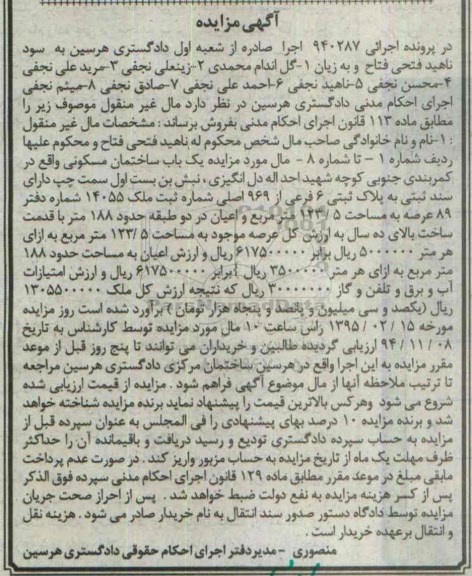 آگهی مزایده
در پرونده اجرائی ۹۴۰۲۸۷ اجرا صادره از شعبه اول دادگستری هرسین به سود
ناهید فتحی فتاح و به زیان ۱-گل اندام محمدی ۲-زینعلی نجفی ۳-مرید علی نجفی
۴-محسن نجفی ۵-ناهید نجفی ۶-احمد علی نجفی ۷-صادق نجفی ۸-میثم نجفی
اجرای احکام مدنی دادگستری هرسین در نظر دارد مال غیر منقول موصوف زیر را
مطابق ماده ۱۱۳ قانون اجرای احکام مدنی بفروش برساند : مشخصات مال غیر منقول
: ۱-نام و نام خانوادگی صاحب مال شخص محکوم له ناهید فتحی فتاح و محکوم علیها
ردیف شماره ۱ - تا شماره ۸ - مال مورد مزایده یک باب ساختمان مسکونی واقع در
کمربندی جنوبی کوچه شهید احد اله دل انگیزی ، نبش بن بست اول سمت چپ دارای
سند ثبتی به پلاک ثبتی ۶ فرعی از ۹۶۹ اصلی شماره ثبت ملک ۱۴۰۵۵ شماره دفتر
۸۹ عرصه به مساحت ۱۲۳/۵ متر مربع و اعیان در دو طبقه حدود ۱۸۸ متر با قدمت
ساخت بالای ده سال به ارزش کل عرصه موجود به مساحت ۱۲۳/۵ متر مربع به ازای
هر متر ۵۰۰۰۰۰۰ ریال برابر ۶۱۷۵۰۰۰۰۰ ریال و ارزش اعیان به مساحت حدود ۱۸۸
متر مربع به ازای هر متر ۳۵۰۰۰۰۰ ریال برابر ۶۱۷۵۰۰۰۰۰ ریال و ارزش امتیازات
آب و برق و تلفن و گاز ۳۰۰۰۰۰۰۰ ریال که نتیجه ارزش کل ملک ۱۳۰۵۵۰۰۰۰۰
ریال (یکصد و سی میلیون و پانصد و پنجاه هزار تومان ) برآورد شده است روز مزایده
مورخه ۱۵ / ۰۲ / ۱۳۹۵ راس ساعت ۱۰ مال مورد مزایده توسط کارشناس به تاریخ
۰۸ / ۱۱ / ۹۴ ارزیابی گردیده طالبین و خریداران می توانند تا پنج روز قبل از موعد
مقرر مزایده به این اجرا واقع در هرسین ساختمان مرکزی دادگستری هرسین مراجعه
تا ترتیب ملاحظه آنها از مال موضوع آگهی فراهم شود . مزایده از قیمت ارزیابی شده
شروع می شود وهر کس بالاترین قیمت را پیشنهاد نماید برنده مزایده شناخته خواهد
شد و برنده مزایده ۱۰ درصد بهای پیشنهادی را فی المجلس به عنوان سپرده قبل از
مزایده به حساب سپرده دادگستری تودیع و رسید دریافت و باقیمانده آن را حداکثر
ظرف مهلت یک ماه از تاریخ مزایده به حساب مزبور واریز کند . در صورت عدم پرداخت
مابقی مبلغ در موعد مقرر مطابق ماده ۱۲۹ قانون اجرای احکام مدنی سپرده فوق الذکر
پس از کسر هزینه مزایده به نفع دولت ضبط خواهد شد . پس از احراز صحت جریان
مزایده توسط دادگاه دستور صدور سند انتقال به نام خریدار صادر می شود . هزینه نقل
و انتقال برعهده خریدار است .
منصوری - مدیر دفتر اجرای احکام حقوقی دادگستری هرسین